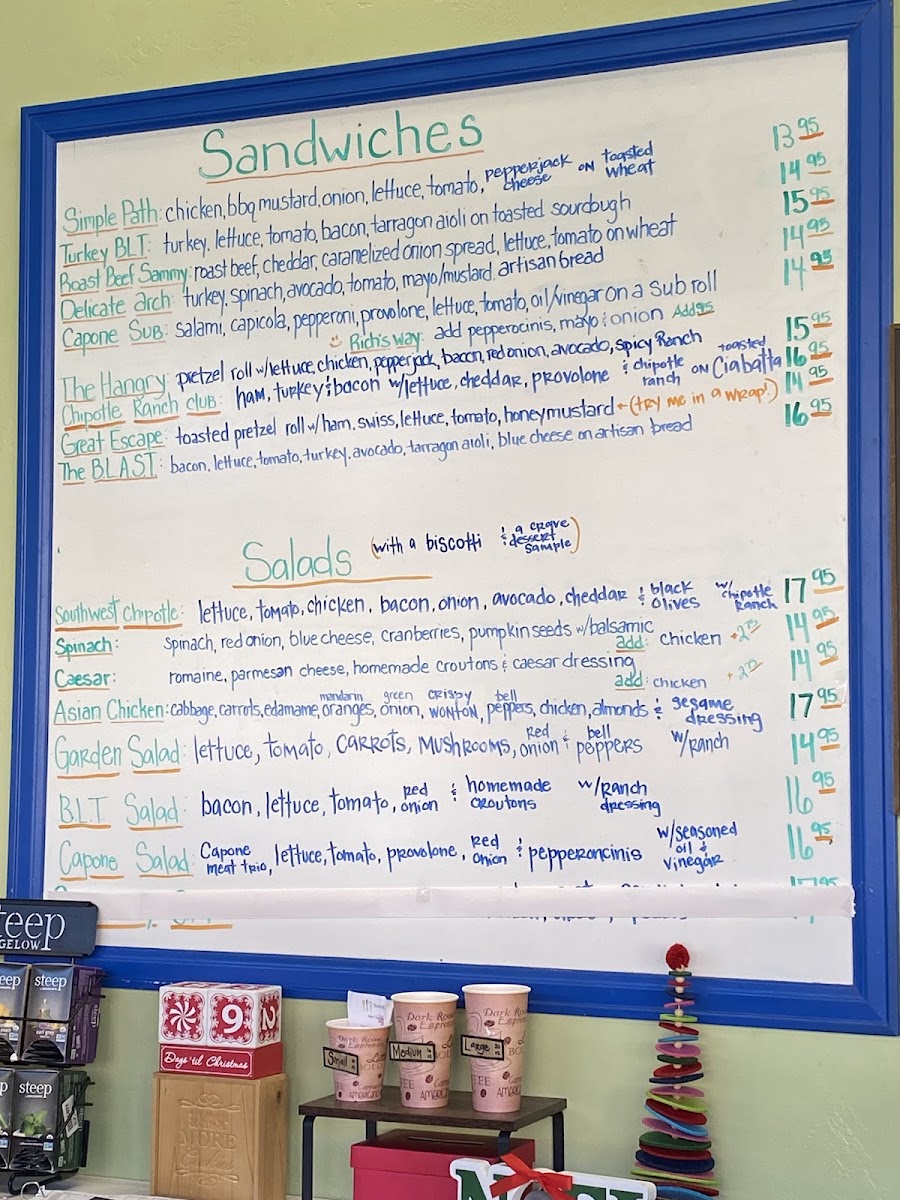 Sandwiches
Simple Path: chicken, bbq mustard, onion, lettuce, tomato, pepperjack cheese on toasted wheat 13.95
Turkey BLT: turkey, lettuce, tomato, bacon, tarragon aioli on toasted sourdough 14.95
Roast Beef Sammy: roast beef, cheddar, caramelized onion spread, lettuce, tomato on wheat 15.95
Delicate arch: turkey, spinach, avocado, tomato, mayo/mustard, artisan bread 14.95
Capone Sub: salami, capicola, pepperoni, provolone, lettuce, tomato, oil/vinegar on a sub roll 14.95
Rich's way: add pepperocinis, mayo & onion Add .95
The Hangry: pretzel roll w/lettuce, chicken, pepperjack, bacon, red onion, avocado, spicy Ranch 15.95
Chipotle Ranch club: ham, turkey & bacon w/lettuce, cheddar, provolone & chipotle ranch on toasted Ciabatta 16.95
Great Escape: toasted pretzel roll w/ham, swiss, lettuce, tomato, honeymustard ← (try me in a wrap!) 14.95
The B.L.A.S.T.: bacon, lettuce, tomato, turkey, avocado, tarragon aioli, blue cheese on artisan bread 16.95
Salads (with a biscotti & a crave dessert sample)
Southwest Chipotle: lettuce, tomato, chicken, bacon, onion, avocado, cheddar & black olives w/ chipotle Ranch 17.95
Spinach: Spinach, red onion, blue cheese, cranberries, pumpkin seeds w/balsamic 14.95
add: chicken +2.75
Caesar: romaine, parmesan cheese, homemade croutons & caesar dressing 14.95
add: chicken
Asian Chicken: cabbage, carrots, edamame, mandarin oranges, green onion, crispy wonton, bell peppers, chicken, almonds & sesame dressing 17.95
Garden Salad: lettuce, tomato, carrots, mushrooms, Red onion & bell peppers w/ranch 14.95
B.L.T. Salad: bacon, lettuce, tomato, red onion & homemade croutons w/Ranch dressing 16.95
Capone Salad: Capone meat trio, lettuce, tomato, provolone, Red onion & pepperoncinis w/seasoned oil & vinegar 16.95
teep
GELOW
steep
steep
9
Days 'til Christmas
Small
Medium
Large
Dark Roast
Espresso
MORE